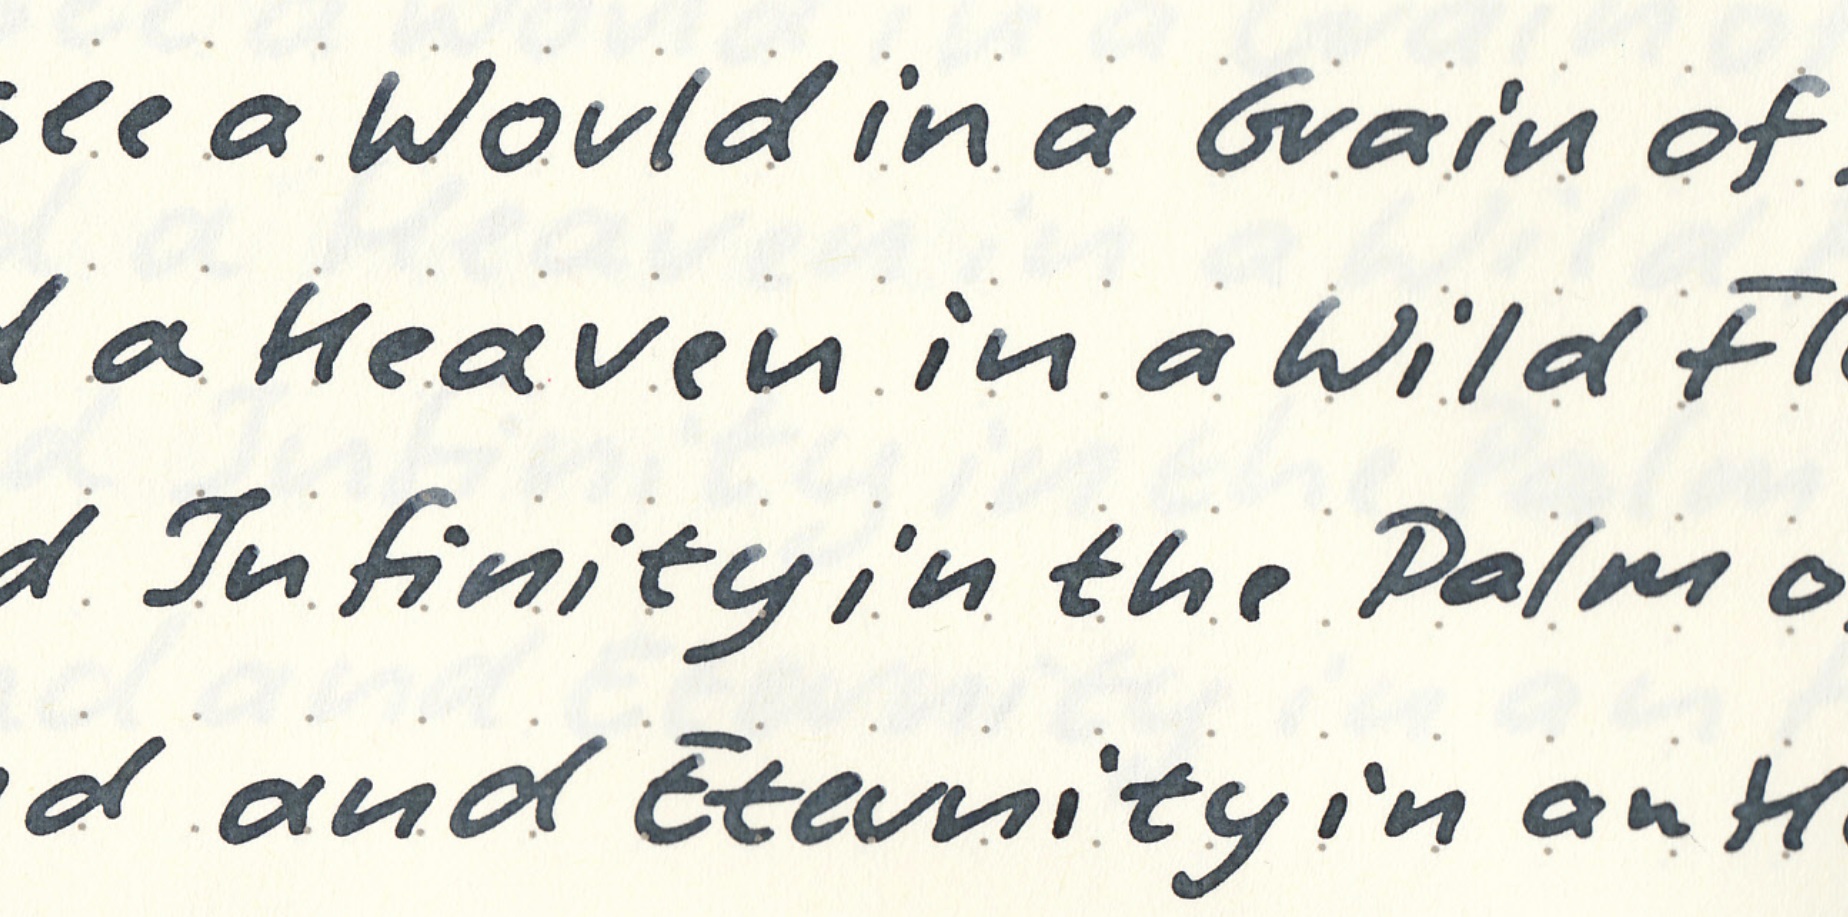 see a World in a Grain of
d a Heaven in a Wild Flo
d Infinity in the Palm o
nd and Eternity in an H